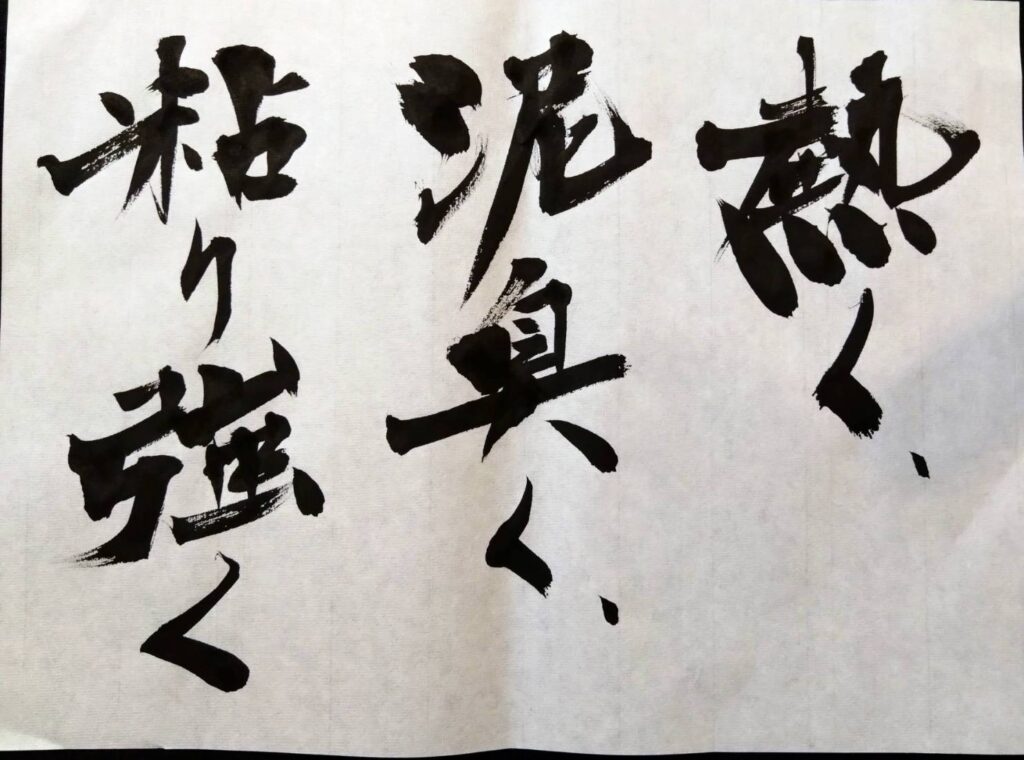 熱く、
泥臭く、
粘り強く